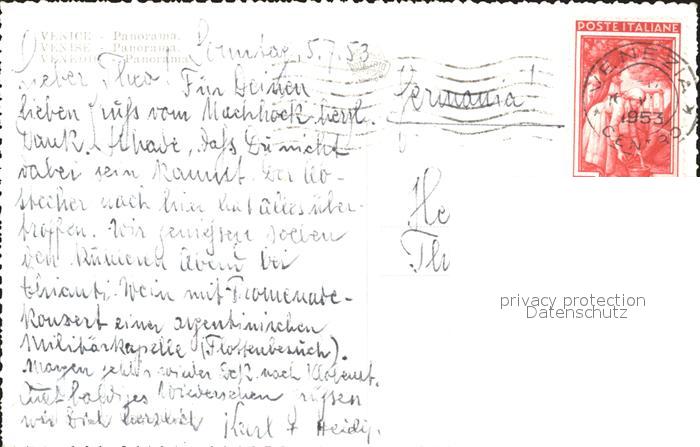 VENICE - Panorama.
VENISE - Panorama.
VENEDIG - Panorama.
Sonntag 5.7.53
Lieber Theo! Für Deinen
lieben Gruß vom Nachhock herzl.
Dank. Schade, daß Du nicht
dabei sein kannst. Der
Abstecher nach hier hat alles über-
troffen. Wir genießen soeben
den kühlenden Abend bei
Chianti-Wein mit Promenade-
Konzert einer argentinischen
Militärkapelle (Flottenbesuch).
Morgen geht's wieder zck. nach
Auf baldiges Wiedersehen grüßen
wir Dich herzlich Karl & Heidy.
Germania!
He
Th
POSTE ITALIANE
VENEZIA
1953
CENTRO
privacy protection
Datenschutz